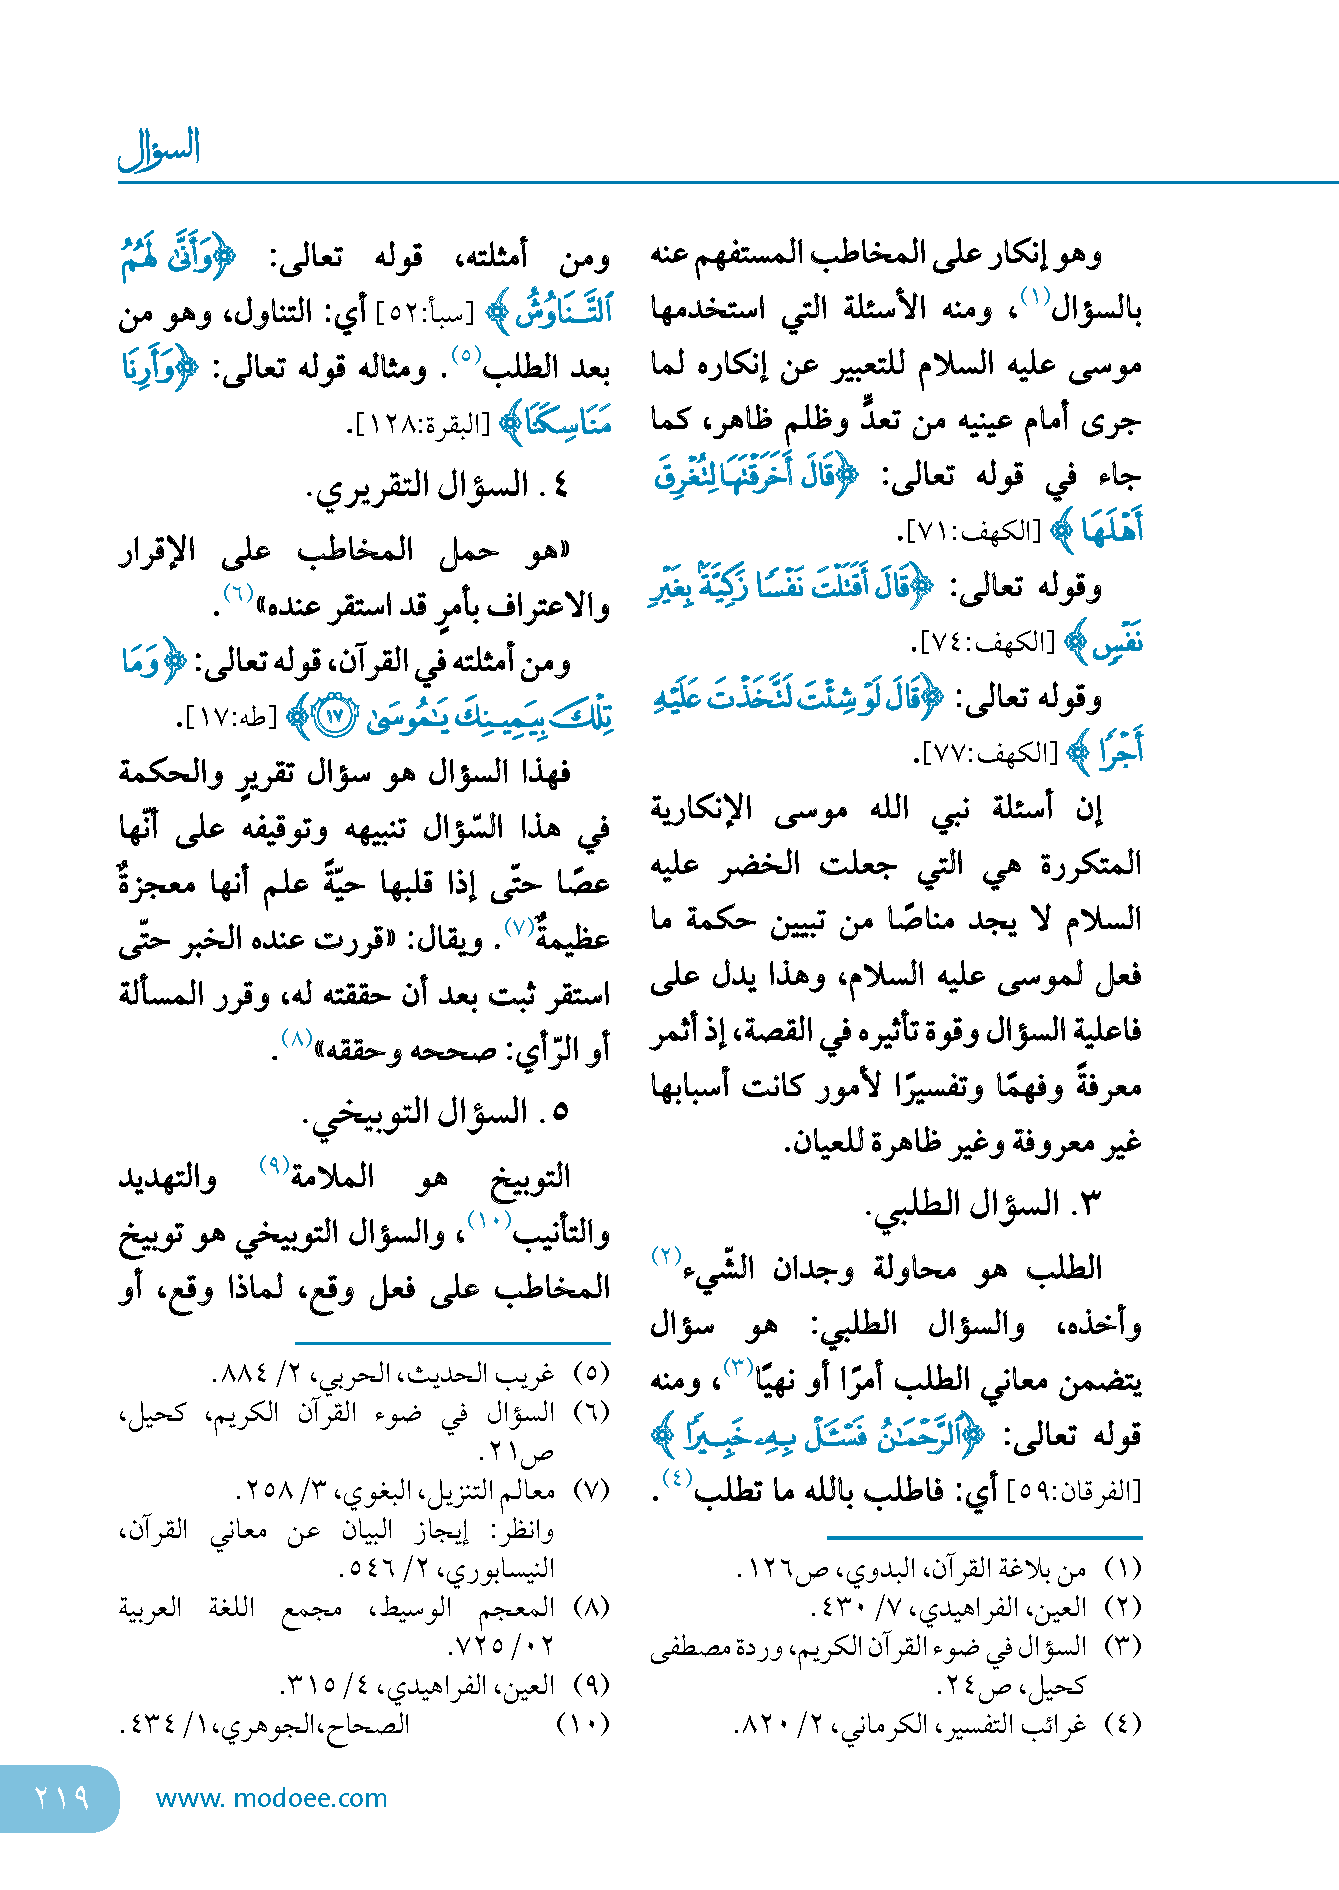 السؤال
وهو إنكار على المخاطب المستفهم عنه
بالسؤال(١)، ومنه الأسئلة التي استخدمها
موسى عليه السلام للتعبير عن إنكاره لما
جرى أمام عينيه من تعدٍّ وظلم ظاهر، كما
جاء في قوله تعالى: ﴿قَالَ أَخَرَقْتَهَا لِتُغْرِقَ
أَهْلَهَا﴾ [الكهف:٧١].
وقوله تعالى: ﴿قَالَ أَقَتَلْتَ نَفْسًا زَكِيَّةً بِغَيْرِ
نَفْسٍ﴾ [الكهف:٧٤].
وقوله تعالى: ﴿قَالَ لَوْ شِئْتَ لَتَّخَذْتَ عَلَيْهِ
أَجْرًا﴾ [الكهف:٧٧].
إن أسئلة نبي الله موسى الإنكارية
المتكررة هي التي جعلت الخضر عليه
السلام لا يجد مناصًا من تبيين حكمة ما
فعل لموسى عليه السلام، وهذا يدل على
فاعلية السؤال وقوة تأثيره في القصة، إذ أثمر
معرفةً وفهمًا وتفسيرًا لأمور كانت أسبابها
غير معروفة وغير ظاهرة للعيان.
٣. السؤال الطلبي.
الطلب هو محاولة وجدان الشّيء(٢)
وأخذه، والسؤال الطلبي: هو سؤال
يتضمن معاني الطلب أمرًا أو نهيًا(٣)، ومنه
قوله تعالى: ﴿ٱلرَّحْمَٰنُ فَسْـَٔلْ بِهِۦ خَبِيرًا﴾
[الفرقان:٥٩] أي: فاطلب بالله ما تطلب(٤).
(١) من بلاغة القرآن، البدوي، ص١٢٦.
(٢) العين، الفراهيدي، ٧/ ٤٣٠.
(٣) السؤال في ضوء القرآن الكريم، وردة مصطفى
كحيل، ص٢٤.
(٤) غرائب التفسير، الكرماني، ٢/ ٨٢٠.
ومن أمثلته، قوله تعالى: ﴿وَأَنَّىٰ لَهُمُ
ٱلتَّنَاوُشُ﴾ [سبأ:٥٢] أي: التناول، وهو من
بعد الطلب(٥). ومثاله قوله تعالى: ﴿وَأَرِنَا
مَنَاسِكَنَا﴾ [البقرة:١٢٨].
٤. السؤال التقريري.
«هو حمل المخاطب على الإقرار
والاعتراف بأمرٍ قد استقر عنده»(٦).
ومن أمثلته في القرآن، قوله تعالى: ﴿وَمَا
تِلْكَ بِيَمِينِكَ يَٰمُوسَىٰ ١٧﴾ [طه:١٧].
فهذا السؤال هو سؤال تقريرٍ والحكمة
في هذا السّؤال تنبيهه وتوقيفه على أنّها
عصًا حتّى إذا قلبها حيّةً علم أنها معجزةٌ
عظيمةٌ(٧). ويقال: «قررت عنده الخبر حتّى
استقر ثبت بعد أن حققته له، وقرر المسألة
أو الرّأي: صححه وحققه»(٨).
٥. السؤال التوبيخي.
التوبيخ هو الملامة(٩) والتهديد
والتأنيب(١٠)، والسؤال التوبيخي هو توبيخ
المخاطب على فعل وقع، لماذا وقع، أو
(٥) غريب الحديث، الحربي، ٢/ ٨٨٤.
(٦) السؤال في ضوء القرآن الكريم، كحيل،
ص٢١.
(٧) معالم التنزيل، البغوي، ٣/ ٢٥٨.
وانظر: إيجاز البيان عن معاني القرآن،
النيسابوري، ٢/ ٥٤٦.
(٨) المعجم الوسيط، مجمع اللغة العربية
٠٢/ ٧٢٥.
(٩) العين، الفراهيدي، ٤/ ٣١٥.
(١٠) الصحاح،الجوهري،١/ ٤٣٤.
٢١٩
www. modoee.com